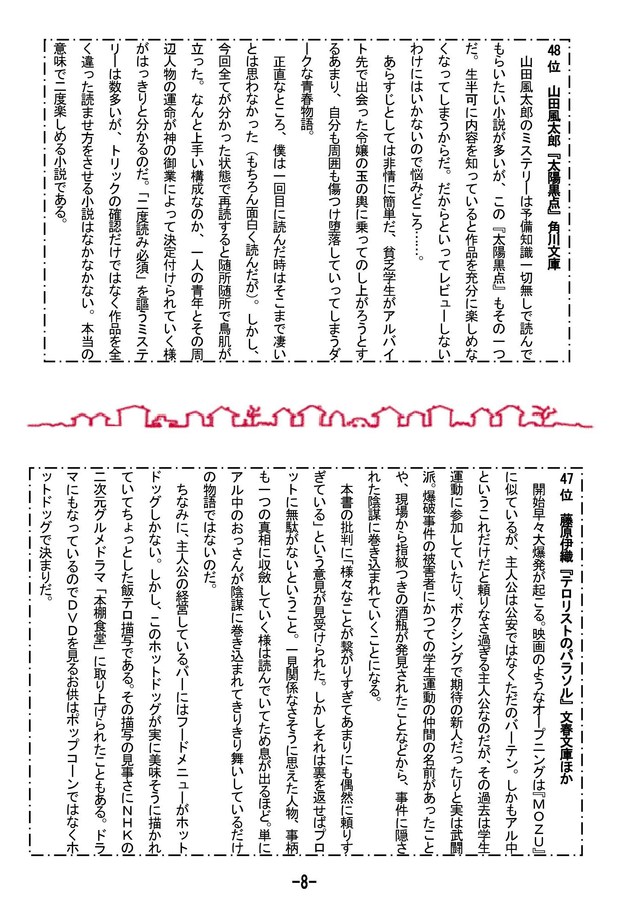 48位　山田風太郎『太陽黒点』角川文庫
　山田風太郎のミステリーは予備知識一切無しで読んで
もらいたい小説が多いが、この『太陽黒点』もその一つ
だ。生半可に内容を知っていると作品を充分に楽しめな
くなってしまうからだ。だからといってレビューしない
わけにはいかないので悩みどころ……。
　あらすじとしては非情に簡単だ、貧乏学生がアルバイ
ト先で出会った令嬢の玉の輿に乗ってのし上がろうとす
るあまり、自分も周囲も傷つけ堕落していってしまうダ
ークな青春物語。
　正直なところ、僕は一回目に読んだ時はそこまで凄い
とは思わなかった（もちろん面白く読んだが）。しかし、
今回全てが分かった状態で再読すると随所随所で鳥肌が
立った。なんと上手い構成なのか、一人の青年とその周
辺人物の運命が神の御業によって決定付けられていく様
がはっきりと分かるのだ。「二度読み必須」を謳うミステ
リーは数多いが、トリックの確認だけではなく作品を全
く違った読ませ方をさせる小説はなかなかない。本当の
意味で二度楽しめる小説である。
47位　藤原伊織『テロリストのパラソル』文春文庫ほか
　開始早々大爆発が起こる。映画のようなオープニングは『MOZU』
に似ているが、主人公は公安ではなくただのバーテン。しかもアル中
というこれだけだと頼りなさ過ぎる主人公なのだが、その過去は学生
運動に参加していたり、ボクシングで期待の新人だったりと実は武闘
派。爆破事件の被害者にかつての学生運動の仲間の名前があったこと
や、現場から指紋つきの酒瓶が発見されたことなどから、事件に隠さ
れた陰謀に巻き込まれていくことになる。
　本書の批判に「様々なことが繋がりすぎてあまりにも偶然に頼りす
ぎている」という意見が見受けられた。しかしそれは裏を返せばプロ
ットに無駄がないということ。一見関係なさそうに思えた人物、事柄
も一つの真相に収斂していく様は読んでいてため息が出るほど。単に
アル中のおっさんが陰謀に巻き込まれてきりきり舞いしているだけ
の物語ではないのだ。
　ちなみに、主人公の経営しているバーにはフードメニューがホット
ドッグしかない。しかし、このホットドッグが実に美味そうに描かれ
ていてちょっとした飯テロ描写である。その描写の見事さにNHKの
二次元グルメドラマ「本棚食堂」に取り上げられたこともある。ドラ
マにもなっているのでDVDを見るお供はポップコーンではなくホ
ットドッグで決まりだ。
-8-